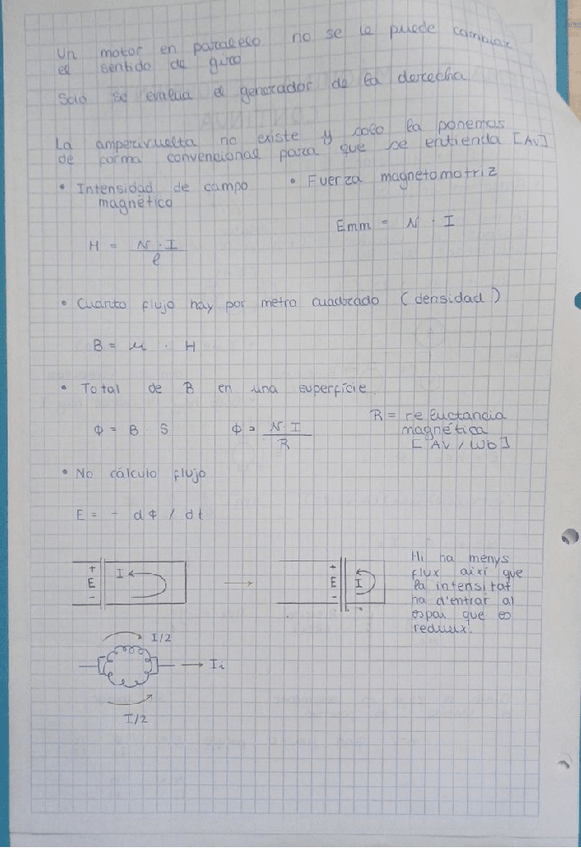 Un motor en paralelo no se le puede cambiar
el sentido de giro
Solo se evalua el generador de la derecha
La amperavuelta no existe y solo la ponemos
de forma convencional para que se entienda [Av]
• Intensidad de campo magnético
• Fuerza magnetomotriz
H = N · I / l
Emm = N · I
• Cuanto flujo hay por metro cuadrado (densidad)
B = μ · H
• Total de B en una superficie
Φ = B · S
Φ = N · I / R
R = reluctancia
magnética
[Av / Wb]
• No cálculo flujo
E = - dΦ / dt
+ E - I
+ E - I
Hi ha menys
flux així que
la intensitat
ha d'entrar al
espai que es
redueix.
I/2
Ii
I/2